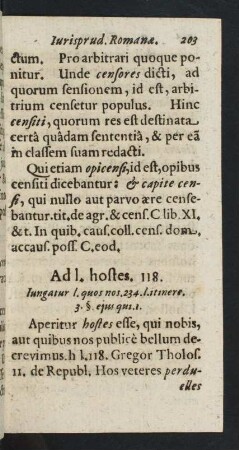 Iurisprud. Romanæ. 203
ctum. Pro arbitrari quoque po-
nitur. Unde censores dicti, ad
quorum sensionem, id est, arbi-
trium censetur populus. Hinc
censiti, quorum res est destinata
certâ quâdam sententiâ, & per eã
in classem suam redacti.
Qui etiam opicensi, id est, opibus
censiti dicebantur: & capite cen-
si, qui nullo aut parvo ære cense-
bantur. tit. de agr. & cens. C lib. XI.
& t. In quib. caus. coll. cens. dom.
accaus. poss. C. eod.
Ad l. hostes. 118.
Iungatur l. quos nos. 234. l. itinere.
3. §. ejus qui. 1.
Aperitur hostes esse, qui nobis,
aut quibus nos publicè bellum de-
crevimus. h l. 118. Gregor Tholos.
11. de Republ. Hos veteres perdu-
elles